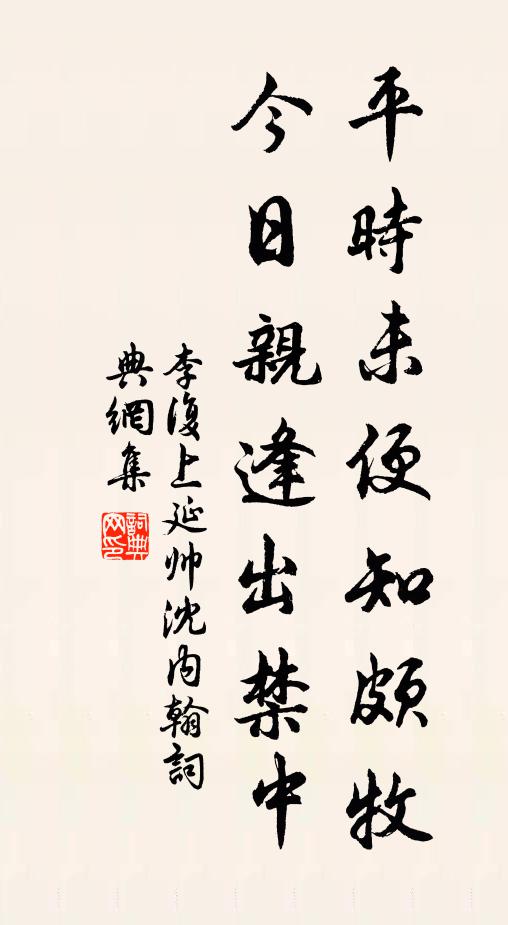 平時未便知頗牧
今日親逢出禁中
李復上延帅沈内翰詞
典網集
詞典
网印